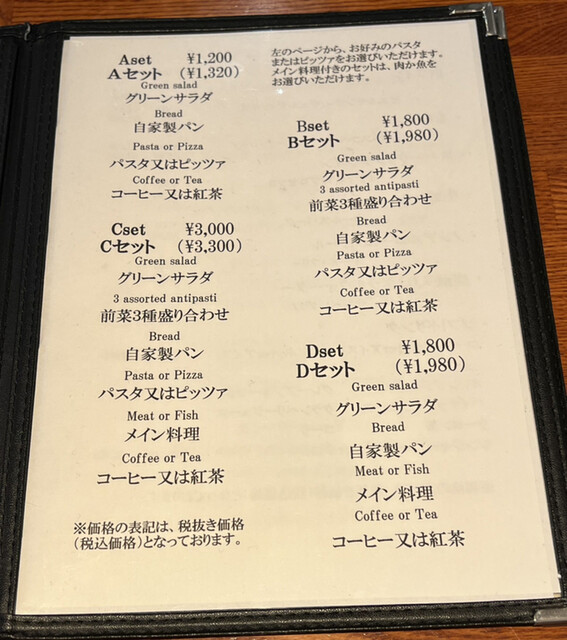 Aset ¥1,200
Aセット (¥1,320)
Green salad
グリーンサラダ
Bread
自家製パン
Pasta or Pizza
パスタ又はピッツァ
Coffee or Tea
コーヒー又は紅茶
Cset ¥3,000
Cセット (¥3,300)
Green salad
グリーンサラダ
3 assorted antipasti
前菜3種盛り合わせ
Bread
自家製パン
Pasta or Pizza
パスタ又はピッツァ
Meat or Fish
メイン料理
Coffee or Tea
コーヒー又は紅茶
※価格の表記は、税抜き価格
(税込価格)となっております。
左のページから、お好みのパスタ
またはピッツァをお選びいただけます。
メイン料理付きのセットは、肉か魚を
お選びいただけます。
Bset ¥1,800
Bセット (¥1,980)
Green salad
グリーンサラダ
3 assorted antipasti
前菜3種盛り合わせ
Bread
自家製パン
Pasta or Pizza
パスタ又はピッツァ
Coffee or Tea
コーヒー又は紅茶
Dset ¥1,800
Dセット (¥1,980)
Green salad
グリーンサラダ
Bread
自家製パン
Meat or Fish
メイン料理
Coffee or Tea
コーヒー又は紅茶